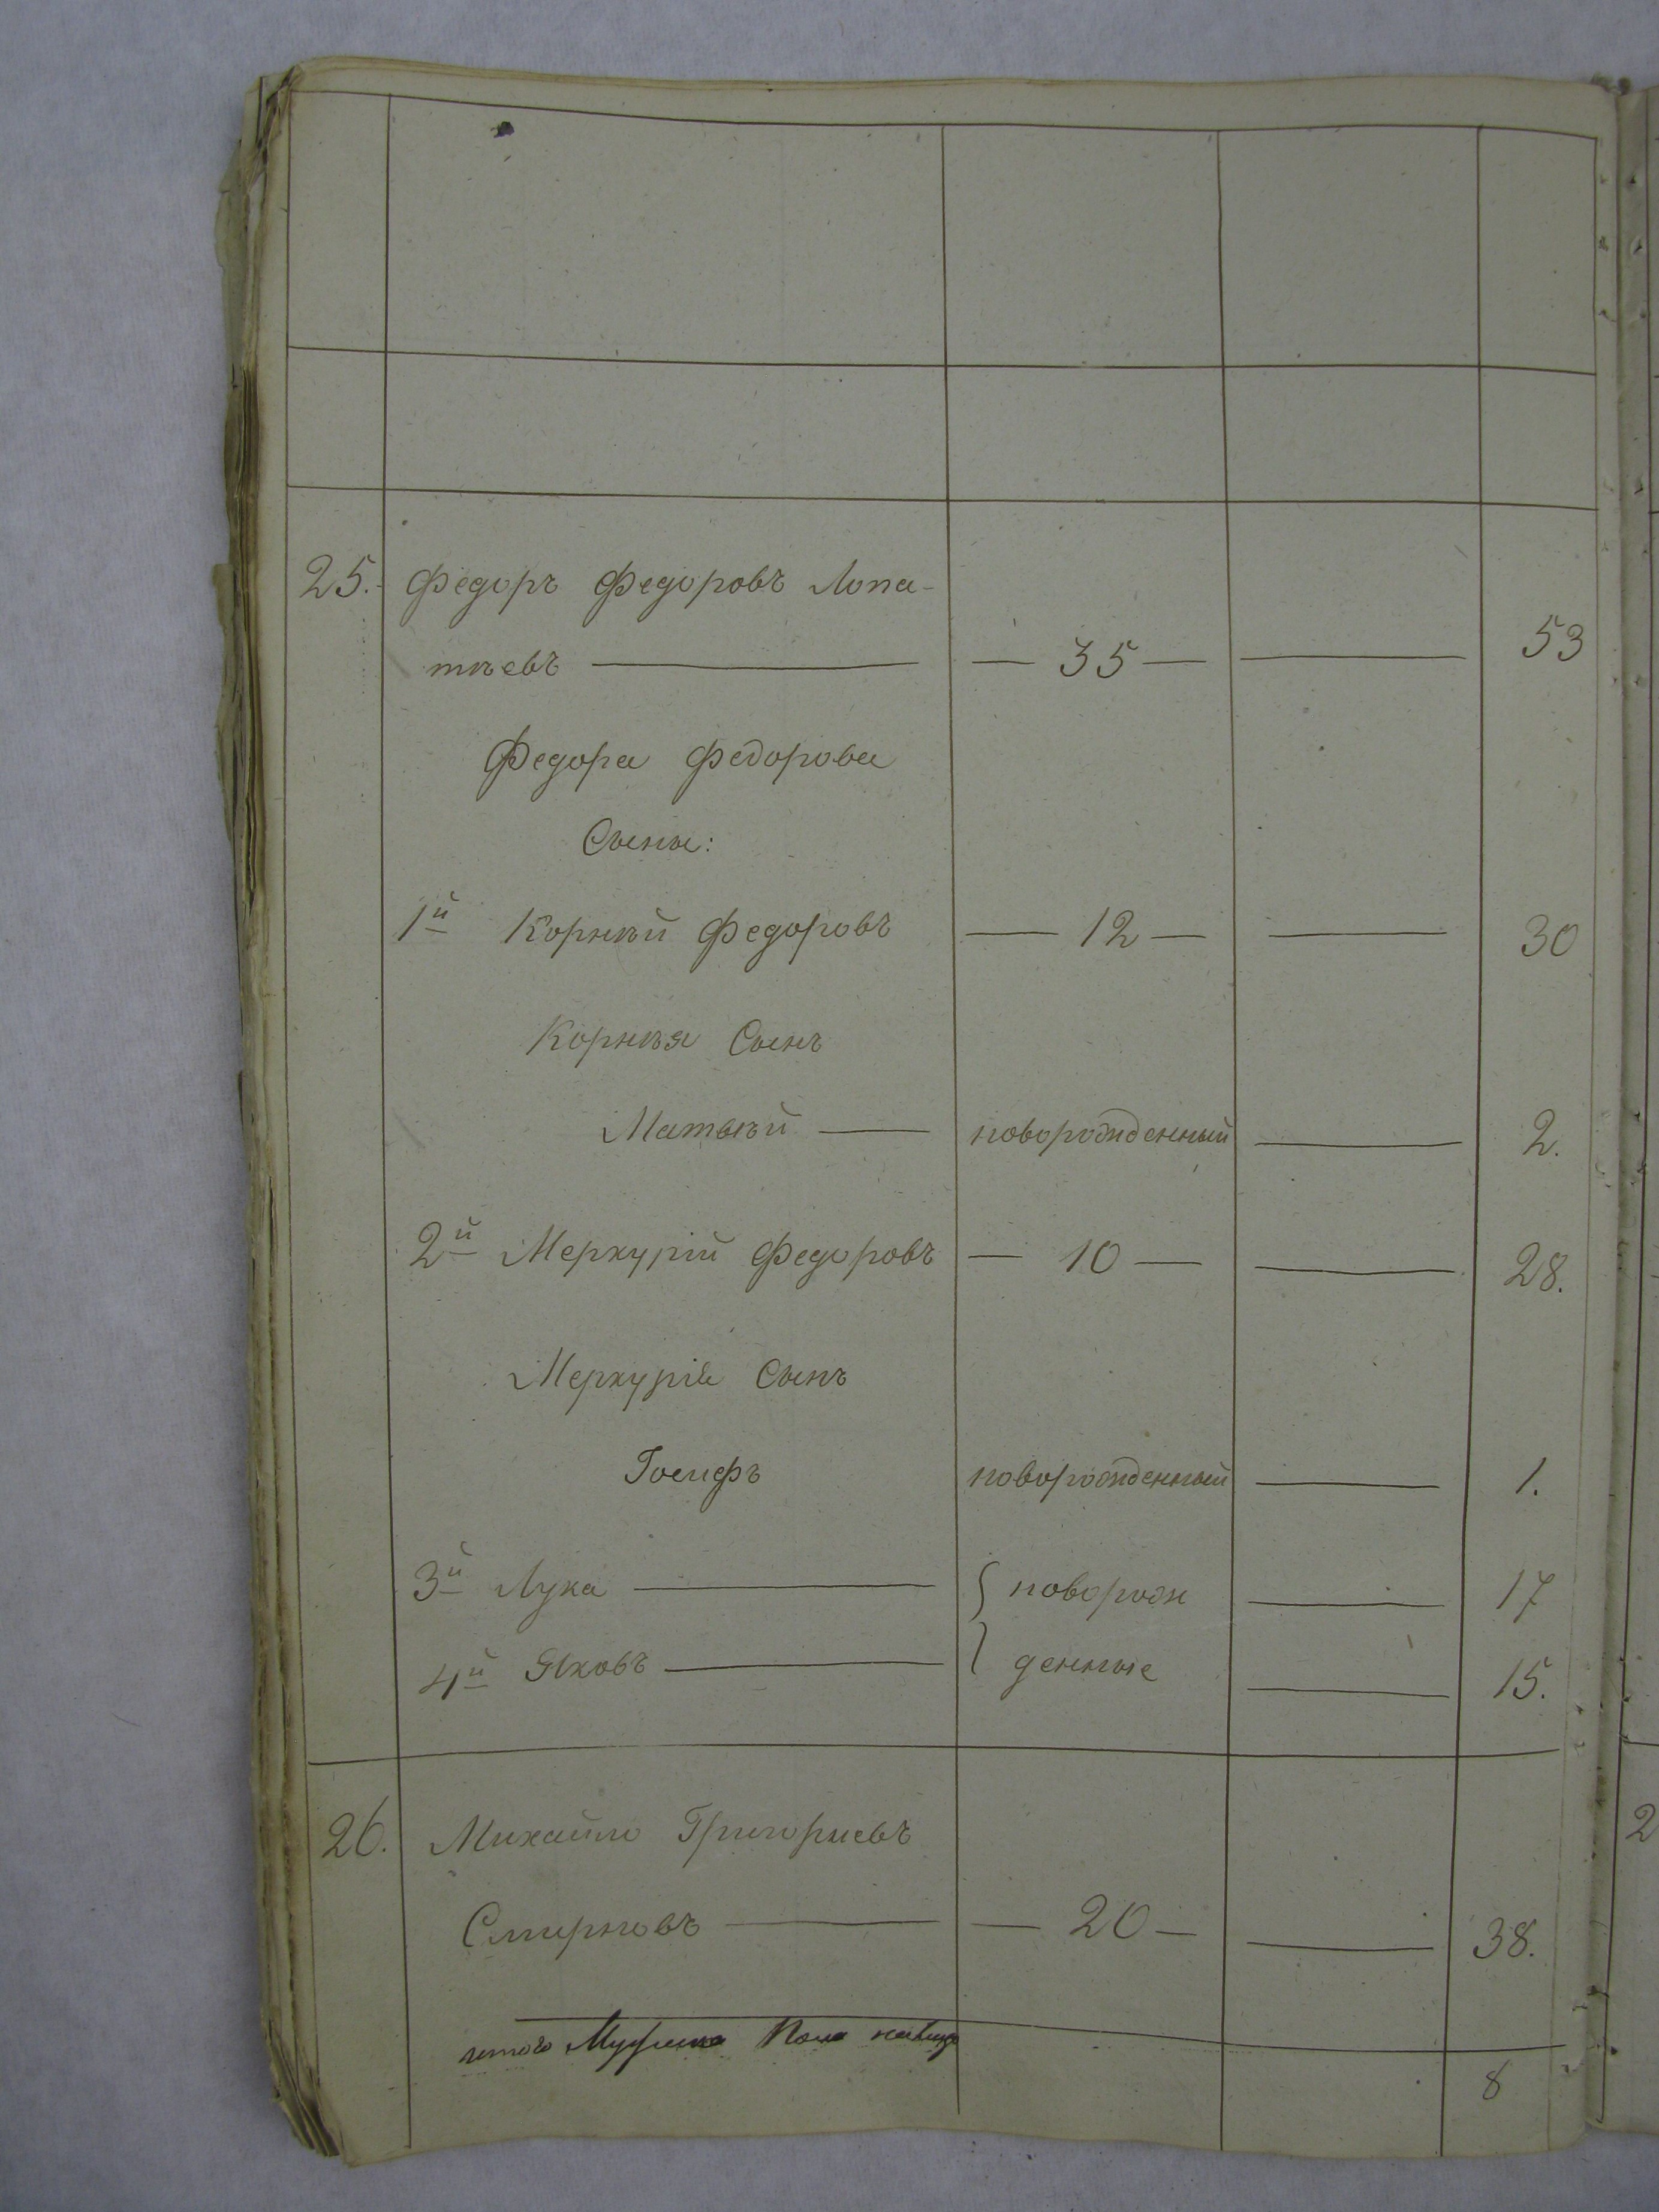 25. Федоръ Федоровъ Лопа-
тнѣевъ — 35 — 53
Федора Федорова
Сыны:
1й Корнѣй Федоровъ — 12 — 30
Корнѣя Сынъ
Матвѣй — новорожденный — 2.
2й Меркурій Федоровъ — 10 — 28.
Меркурія Сынъ
Іосифъ новорожденный — 1.
3й Лука — новорож 17
4й Яковъ — денные 15.
26. Михайло Григориевъ
Смирновъ — 20 — 38.
итого Мужеска Пола налицо
8
2